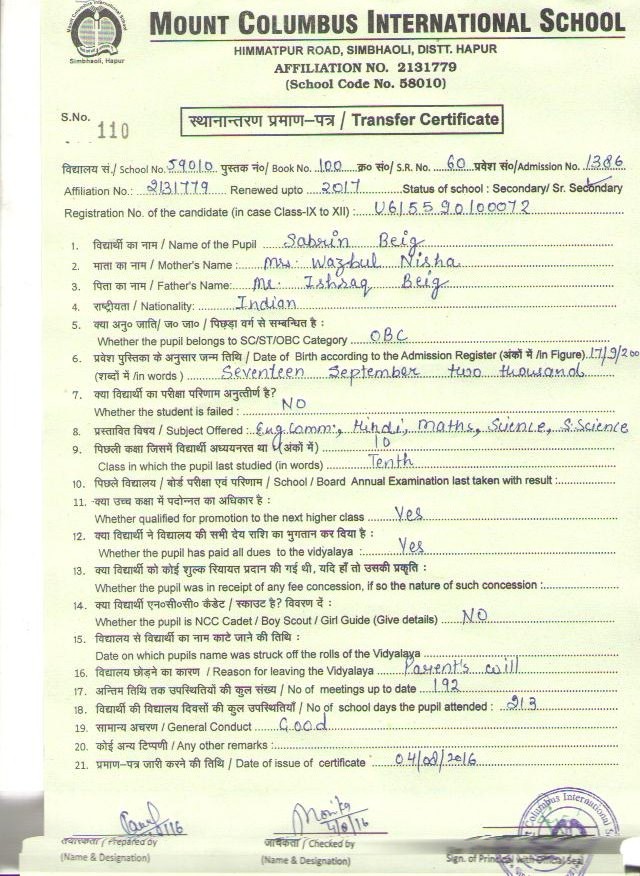 Mount Columbus International School
Simbhaoli, Hapur
MOUNT COLUMBUS INTERNATIONAL SCHOOL
HIMMATPUR ROAD, SIMBHAOLI, DISTT. HAPUR
AFFILIATION NO. 2131779
(School Code No. 58010)
S.No. 110
स्थानान्तरण प्रमाण–पत्र / Transfer Certificate
विद्यालय सं./ School No. 59010 पुस्तक नं०/ Book No. 100 क्र० सं०/ S.R. No. 60 प्रवेश सं०/Admission No. 1386
Affiliation No.: 2131779 Renewed upto 2017 Status of school : Secondary/ Sr. Secondary
Registration No. of the candidate (in case Class-IX to XII) : U615590100072
1. विद्यार्थी का नाम / Name of the Pupil Sabrin Beig
2. माता का नाम / Mother's Name : Mrs. Wazbul Nisha
3. पिता का नाम / Father's Name: Mr. Ishraq Beig
4. राष्ट्रीयता / Nationality: Indian
5. क्या अनु० जाति/ ज० जा० / पिछड़ा वर्ग से सम्बन्धित है :
Whether the pupil belongs to SC/ST/OBC Category OBC
6. प्रवेश पुस्तिका के अनुसार जन्म तिथि / Date of Birth according to the Admission Register (अंकों में /in Figure) 17/9/200
(शब्दों में /in words ) Seventeen September two thousand
7. क्या विद्यार्थी का परीक्षा परिणाम अनुत्तीर्ण है?
Whether the student is failed : NO
8. प्रस्तावित विषय / Subject Offered : Eng.Comm:, Hindi, Maths, Science, S.Science
9. पिछली कक्षा जिसमें विद्यार्थी अध्ययनरत था (अंकों में ) 10
Class in which the pupil last studied (in words) Tenth
10. पिछले विद्यालय / बोर्ड परीक्षा एवं परिणाम / School / Board Annual Examination last taken with result :
11. क्या उच्च कक्षा में पदोन्नत का अधिकार है :
Whether qualified for promotion to the next higher class Yes
12. क्या विद्यार्थी ने विद्यालय की सभी देय राशि का भुगतान कर दिया है :
Whether the pupil has paid all dues to the vidyalaya : Yes
13. क्या विद्यार्थी को कोई शुल्क रियायत प्रदान की गई थी, यदि हाँ तो उसकी प्रकृति :
Whether the pupil was in receipt of any fee concession, if so the nature of such concession :
14. क्या विद्यार्थी एन०सी०सी० कैडेट / स्काउट है? विवरण दें :
Whether the pupil is NCC Cadet / Boy Scout / Girl Guide (Give details) NO
15. विद्यालय से विद्यार्थी का नाम काटे जाने की तिथि :
Date on which pupils name was struck off the rolls of the Vidyalaya
16. विद्यालय छोड़ने का कारण / Reason for leaving the Vidyalaya Parent's will
17. अन्तिम तिथि तक उपस्थितियों की कुल संख्य / No of meetings up to date 192
18. विद्यार्थी की विद्यालय दिवसों की कुल उपस्थितियाँ / No of school days the pupil attended : 213
19. सामान्य अचरण / General Conduct Good
20. कोई अन्य टिप्पणी / Any other remarks :
21. प्रमाण-पत्र जारी करने की तिथि / Date of issue of certificate 04/08/2016
Monika
4/8/16
Prepared by
(Name & Designation)
जाचकर्ता / Checked by
(Name & Designation)
Columbus International
Sign. of Principal with Official Seal